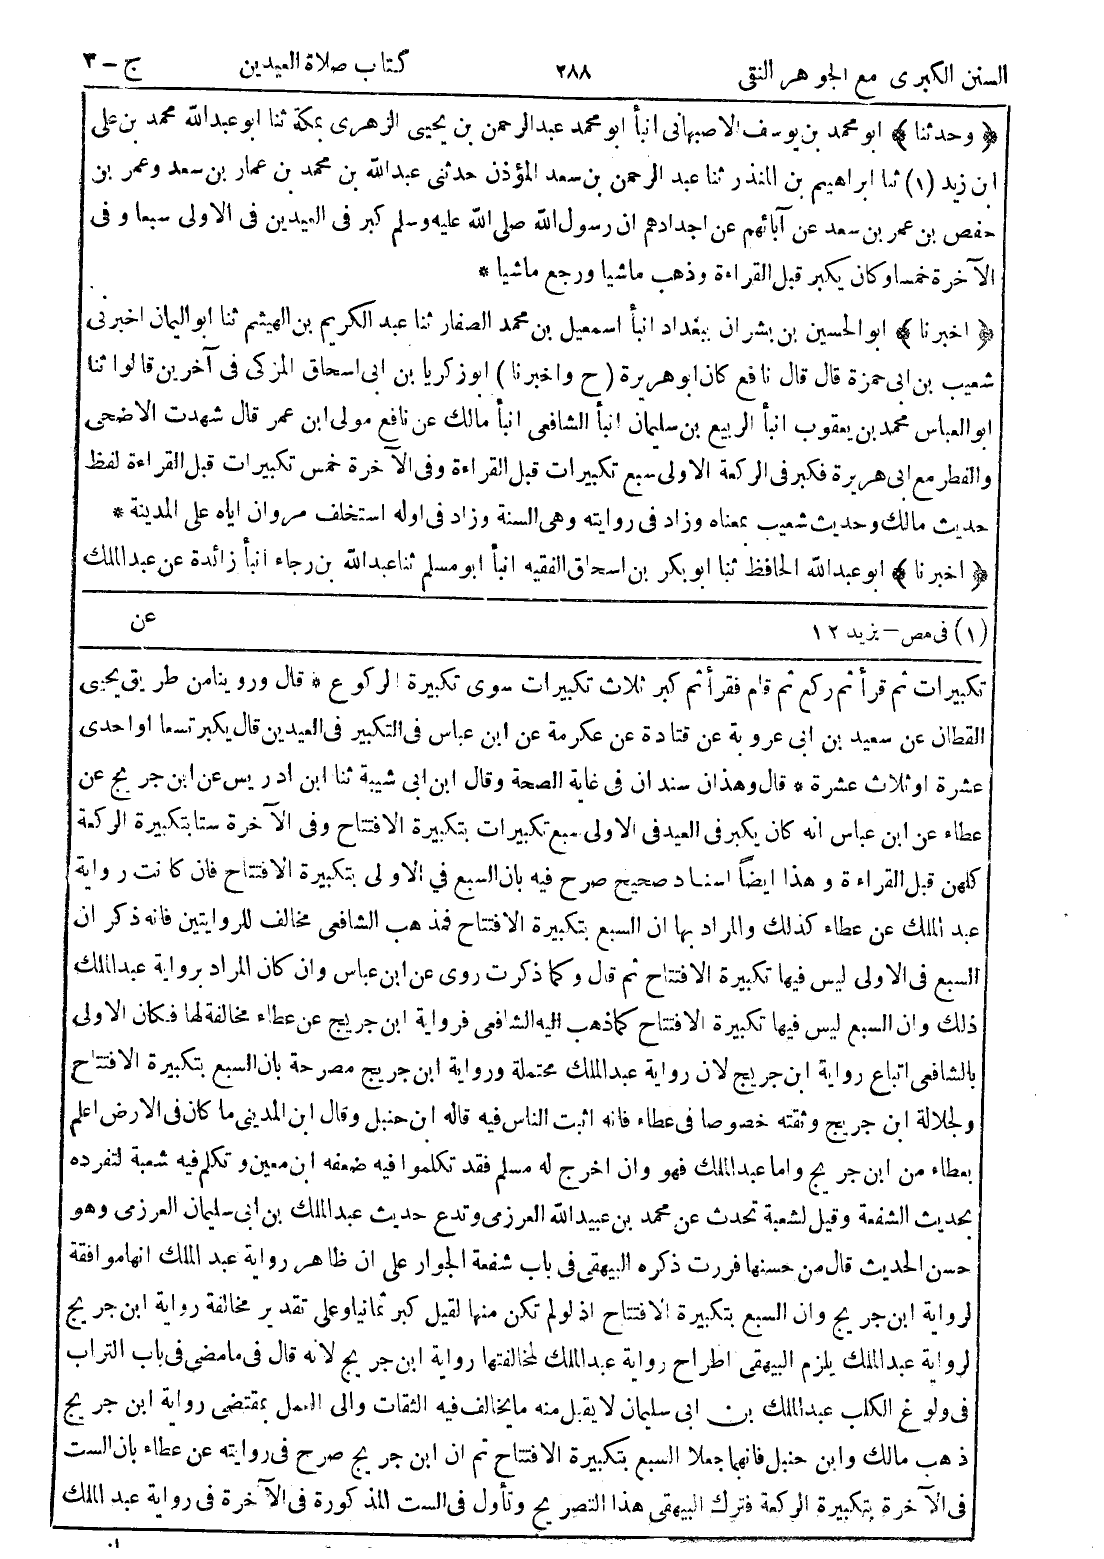 السنن الكبرى مع الجوهر النقى ٢٨٨ كتاب صلاة العيدين ج - ٣
﴿ وحدثنا ﴾ ابو محمد بن يوسف الاصبهانى انبأ ابو محمد عبدالرحمن بن يحيى الزهرى بمكة ثنا ابو عبدالله محمد بن على
ابن زيد (١) ثنا ابراهيم بن المنذر ثنا عبد الرحمن بن سعد المؤذن حدثنى عبدالله بن محمد بن عمار بن سعد وعمر بن
حفص بن عمر بن سعد عن آبائهم عن اجدادهم ان رسول الله صلى الله عليه وسلم كبر فى العيدين فى الاولى سبعا و فى
الآخرة خمسا وكان يكبر قبل القراءة وذهب ماشيا ورجع ماشيا *
﴿ اخبرنا ﴾ ابو الحسين بن بشران ببغداد انبأ اسمعيل بن محمد الصفار ثنا عبد الكريم بن الهيثم ثنا ابو اليمان اخبرنى
شعيب بن ابى حمزة قال قال نافع كان ابو هريرة ( ح واخبرنا ) ابو زكريا بن ابى اسحاق المزكى فى آخرين قالوا ثنا
ابو العباس محمد بن يعقوب انبأ الربيع بن سليمان انبأ الشافعى انبأ مالك عن نافع مولى ابن عمر قال شهدت الاضحى
والفطر مع ابى هريرة فكبر فى الركعة الاولى سبع تكبيرات قبل القراءة وفى الآخرة خمس تكبيرات قبل القراءة لفظ
حديث مالك وحديث شعيب بمعناه وزاد فى روايته وهى السنة وزاد فى اوله استخلف مروان اياه على المدينة *
﴿ اخبرنا ﴾ ابو عبدالله الحافظ ثنا ابو بكر بن اسحاق الفقيه انبأ ابو مسلم ثنا عبدالله بن رجاء انبأ زائدة عن عبد الملك
عن
(١) فى مص - يزيد ١٢
تكبيرات ثم قرأ ثم ركع ثم قام فقرأ ثم كبر ثلاث تكبيرات سوى تكبيرة الركوع * قال وروينا من طريق يحيى
القطان عن سعيد بن ابى عروبة عن قتادة عن عكرمة عن ابن عباس فى التكبير فى العيدين قال يكبر تسعا او احدى
عشرة او ثلاث عشرة * قال وهذان سندان فى غاية الصحة وقال ابن ابى شيبة ثنا ابن ادريس عن ابن جريج عن
عطاء عن ابن عباس انه كان يكبر فى العيد فى الاولى سبع تكبيرات بتكبيرة الافتتاح وفى الآخرة ستا بتكبيرة الركعة
كلهن قبل القراءة و هذا ايضاً اسناد صحيح صرح فيه بان السبع في الاولى بتكبيرة الافتتاح فان كانت رواية
عبد الملك عن عطاء كذلك والمراد بها ان السبع بتكبيرة الافتتاح فمذهب الشافعى مخالف للروايتين فانه ذكر ان
السبع فى الاولى ليس فيها تكبيرة الافتتاح ثم قال وكما ذكرت روى عن ابن عباس وان كان المراد برواية عبد الملك
ذلك وان السبع ليس فيها تكبيرة الافتتاح كما ذهب اليه الشافعى فرواية ابن جريج عن عطاء مخالفة لها فكان الاولى
بالشافعى اتباع رواية ابن جريج لان رواية عبد الملك محتملة ورواية ابن جريج مصرحة بان السبع بتكبيرة الافتتاح
ولجلالة ابن جريج وثقته خصوصا فى عطاء فانه اثبت الناس فيه قاله ابن حنبل وقال ابن المدينى ما كان فى الارض اعلم
بعطاء من ابن جريج واما عبد الملك فهو وان اخرج له مسلم فقد تكلموا فيه ضعفه ابن معين وتكلم فيه شعبة لتفرده
بحديث الشفعة وقيل لشعبة تحدث عن محمد بن عبيد الله العرزمى وتدع حديث عبد الملك بن ابى سليمان العرزمى وهو
حسن الحديث قال من حسنها فررت ذكره البيهقى فى باب شفعة الجوار على ان ظاهر رواية عبد الملك انها موافقة
لرواية ابن جريج وان السبع بتكبيرة الافتتاح اذ لو لم تكن منها لقيل كبر ثمانيا وعلى تقدير مخالفة رواية ابن جريج
لرواية عبد الملك يلزم البيهقى اطراح رواية عبد الملك لمخالفتها رواية ابن جريج لانه قال فى ما مضى فى باب التراب
فى ولوغ الكلب عبد الملك بن ابى سليمان لا يقبل منه ما يخالف فيه الثقات والى العمل بمقتضى رواية ابن جريج
ذهب مالك وابن حنبل فانهما جعلا السبع بتكبيرة الافتتاح ثم ان ابن جريج صرح فى روايته عن عطاء بان الست
فى الآخرة بتكبيرة الركعة فترك البيهقى هذا التصريح وتأول فى الست المذكورة فى الآخرة فى رواية عبد الملك